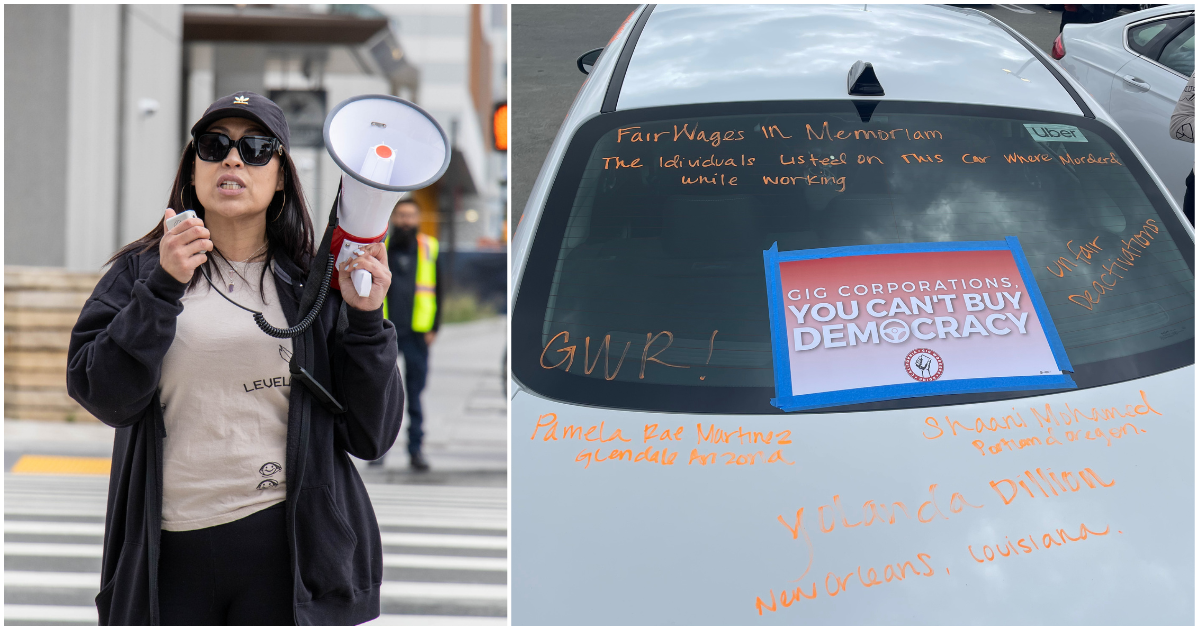 LEVEL
Fair Wages In Memoriam
Uber
The Idividuals Listed on This Car Where Morderd
while working
unfair
Deactivations
GIG CORPORATIONS,
YOU CAN'T BUY
DEMOCRACY
GWR!
Pamela Rae Martinez
Glendale Arizona
Shaani Mohamed
Portland oregon.
Yolanda Dillion
New orleans, Louisiana.